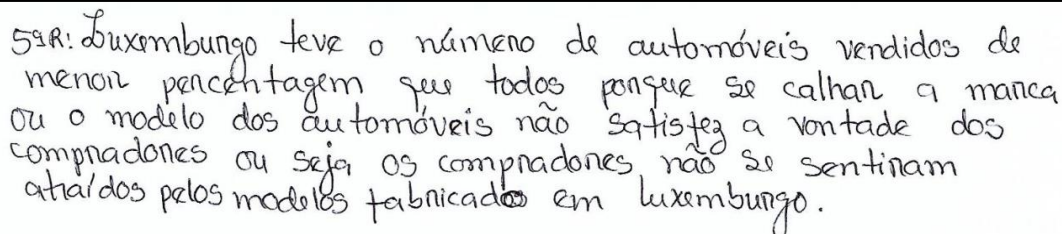 5ªR: Luxemburgo teve o número de automóveis vendidos de
menor percentagem que todos porque se calhar a marca
ou o modelo dos automóveis não satisfez a vontade dos
compradores ou seja os compradores não se sentiram
atraídos pelos modelos fabricados em Luxemburgo.